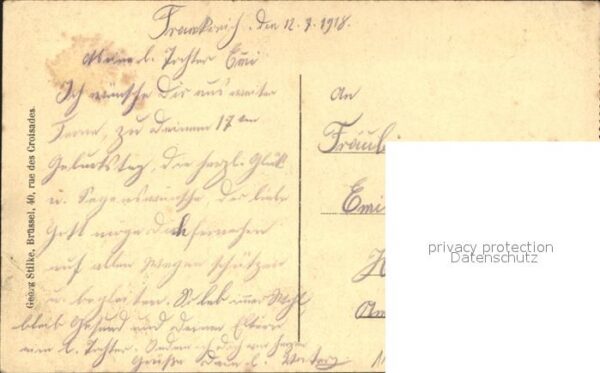 Frankreich, den 12.7.1918.
Meine l. Tochter Emi
Ich wünsche Dir aus weiter
Ferne, zu deinem 17ten
Geburtstag, die herzl. Glück
u. Segenswünsche, der liebe
Gott möge dich fernerhin
auf allen Wegen schützen
u. begleiten. So leb immer Wohl,
bleib Gesund und deinen Eltern
l. Tochter.
Grüße Dein l. Vater
An
Fräul
Emi
Georg Stilke, Brüssel, 40, rue des Croisades.
privacy protection
Datenschutz